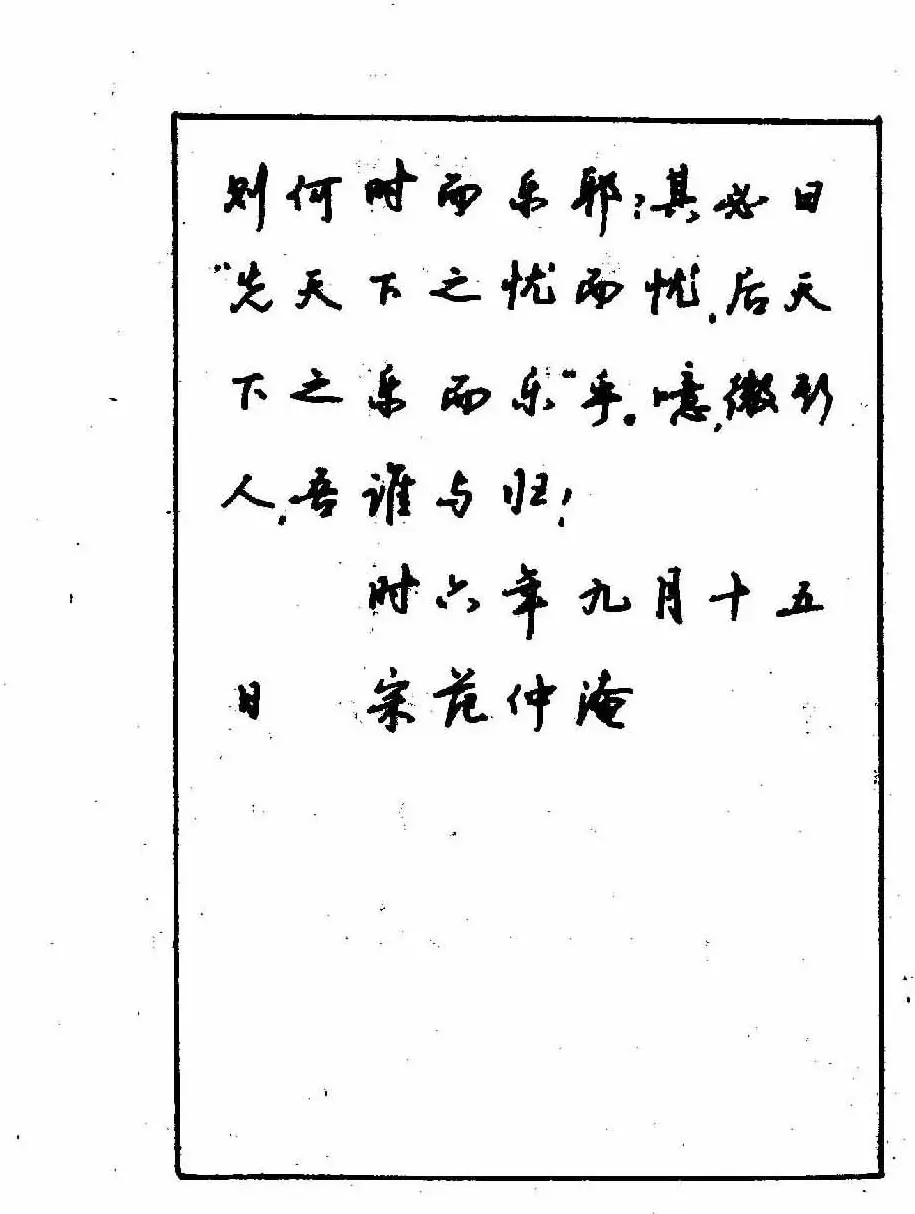 则何时而乐耶?其必曰
"先天下之忧而忧,后天
下之乐而乐"乎。噫,微斯
人,吾谁与归!
时六年九月十五
日 宗范仲淹